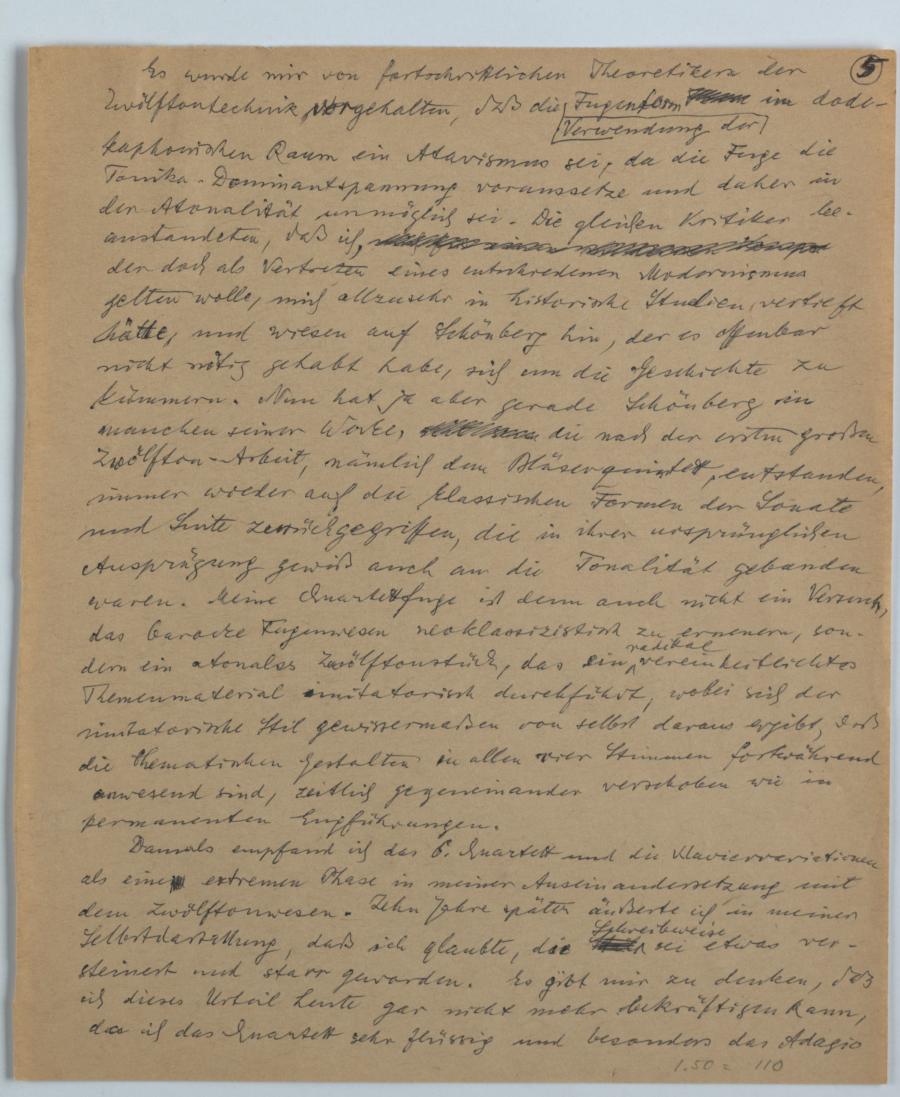 5
Es wurde mir von fortschrittlichen Theoretikern der
Zwölftontechnik vorgehalten, daß die Fugenform im dode-
Verwendung der
kaphonischen Raum ein Atavismus sei, da die Fuge die
Tonika-Dominantspannung voraussetze und daher in
der Atonalität unmöglich sei. Die gleichen Kritiker be-
anstandeten, daß ich,
der doch als Vertreter eines entschiedenen Modernismus
gelten wolle, mich allzusehr in historische Studien vertieft
hätte, und wiesen auf Schönberg hin, der es offenbar
nicht nötig gehabt habe, sich um die Geschichte zu
kümmern. Nun hat ja aber gerade Schönberg in
manchen seiner Werke, die nach der ersten großen
Zwölfton-Arbeit, nämlich dem Bläserquintett, entstanden,
immer wieder auf die klassischen Formen der Sonate
und Suite zurückgegriffen, die in ihrer ursprünglichen
Ausprägung gewiß auch an die Tonalität gebunden
waren. Meine Quartettfuge ist denn auch nicht ein Versuch,
das barocke Fugenwesen neoklassizistisch zu erneuern, son-
radikal
dern ein atonales Zwölftonstück, das ein vereinheitlichtes
Themenmaterial imitatorisch durchführt, wobei sich der
imitatorische Stil gewissermaßen von selbst daraus ergibt, daß
die thematischen Gestalten in allen vier Stimmen fortwährend
anwesend sind, zeitlich gegeneinander verschoben wie in
permanenten Engführungen.
Damals empfand ich das 6. Quartett und die Klaviervariationen
als eine extremen Phase in meiner Auseinandersetzung mit
dem Zwölftonwesen. Zehn Jahre später äußerte ich in meiner
Schreibweise
Selbstdarstellung, daß ich glaubte, die sei etwas ver-
steinert und starr geworden. Es gibt mir zu denken, daß
ich dieses Urteil heute gar nicht mehr bekräftigen kann,
da ich das Quartett sehr flüssig und besonders das Adagio
1.50 = 110